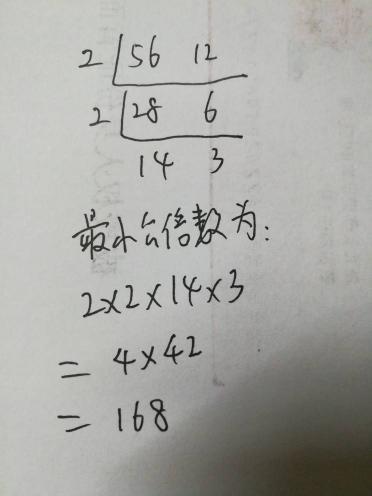 2 56 12
2 28 6
14 3
最小公倍数为:
2×2×14×3
= 4×42
= 168